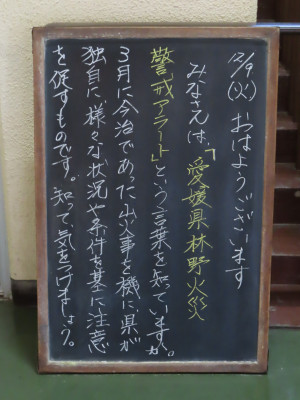 12/9(火) おはようございます
みなさんは、「愛媛県林野火災
警戒アラート」という言葉を知っていますか。
3月に今治であった山火事を機に、県が
独自に、様々な状況や条件を基に注意
を促すものです。知って、気をつけましょう。